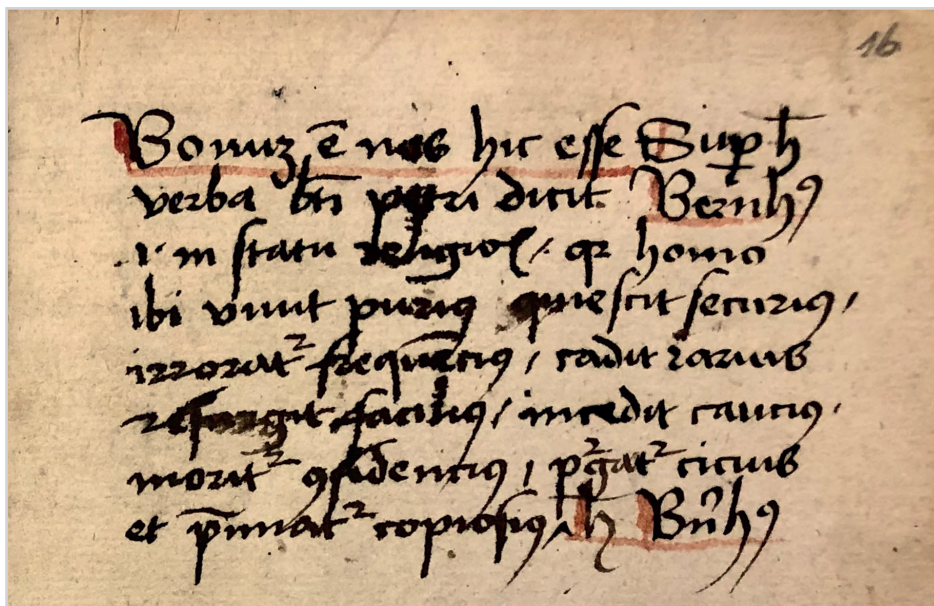 16
Bonuz ē nos hic esse Sup h̄
verba bt̄i petri dicit Bern̄hꝰ
.i. in statu religioꝭ / qꝛ homo
ibi viuit puriꝰ quiescit securiꝰ /
irrorat᷑ frequēciꝰ / cadit rarius
resurgit faciliꝰ / incedit cauciꝰ /
morit᷑ ꝯfidenciꝰ / p᷑gat᷑ cicius
et p̄miat᷑ copiosiꝰ / h̄ Bn̄hꝰ